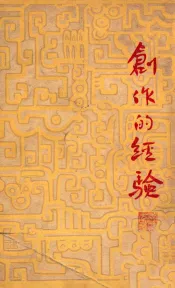 創作的經验